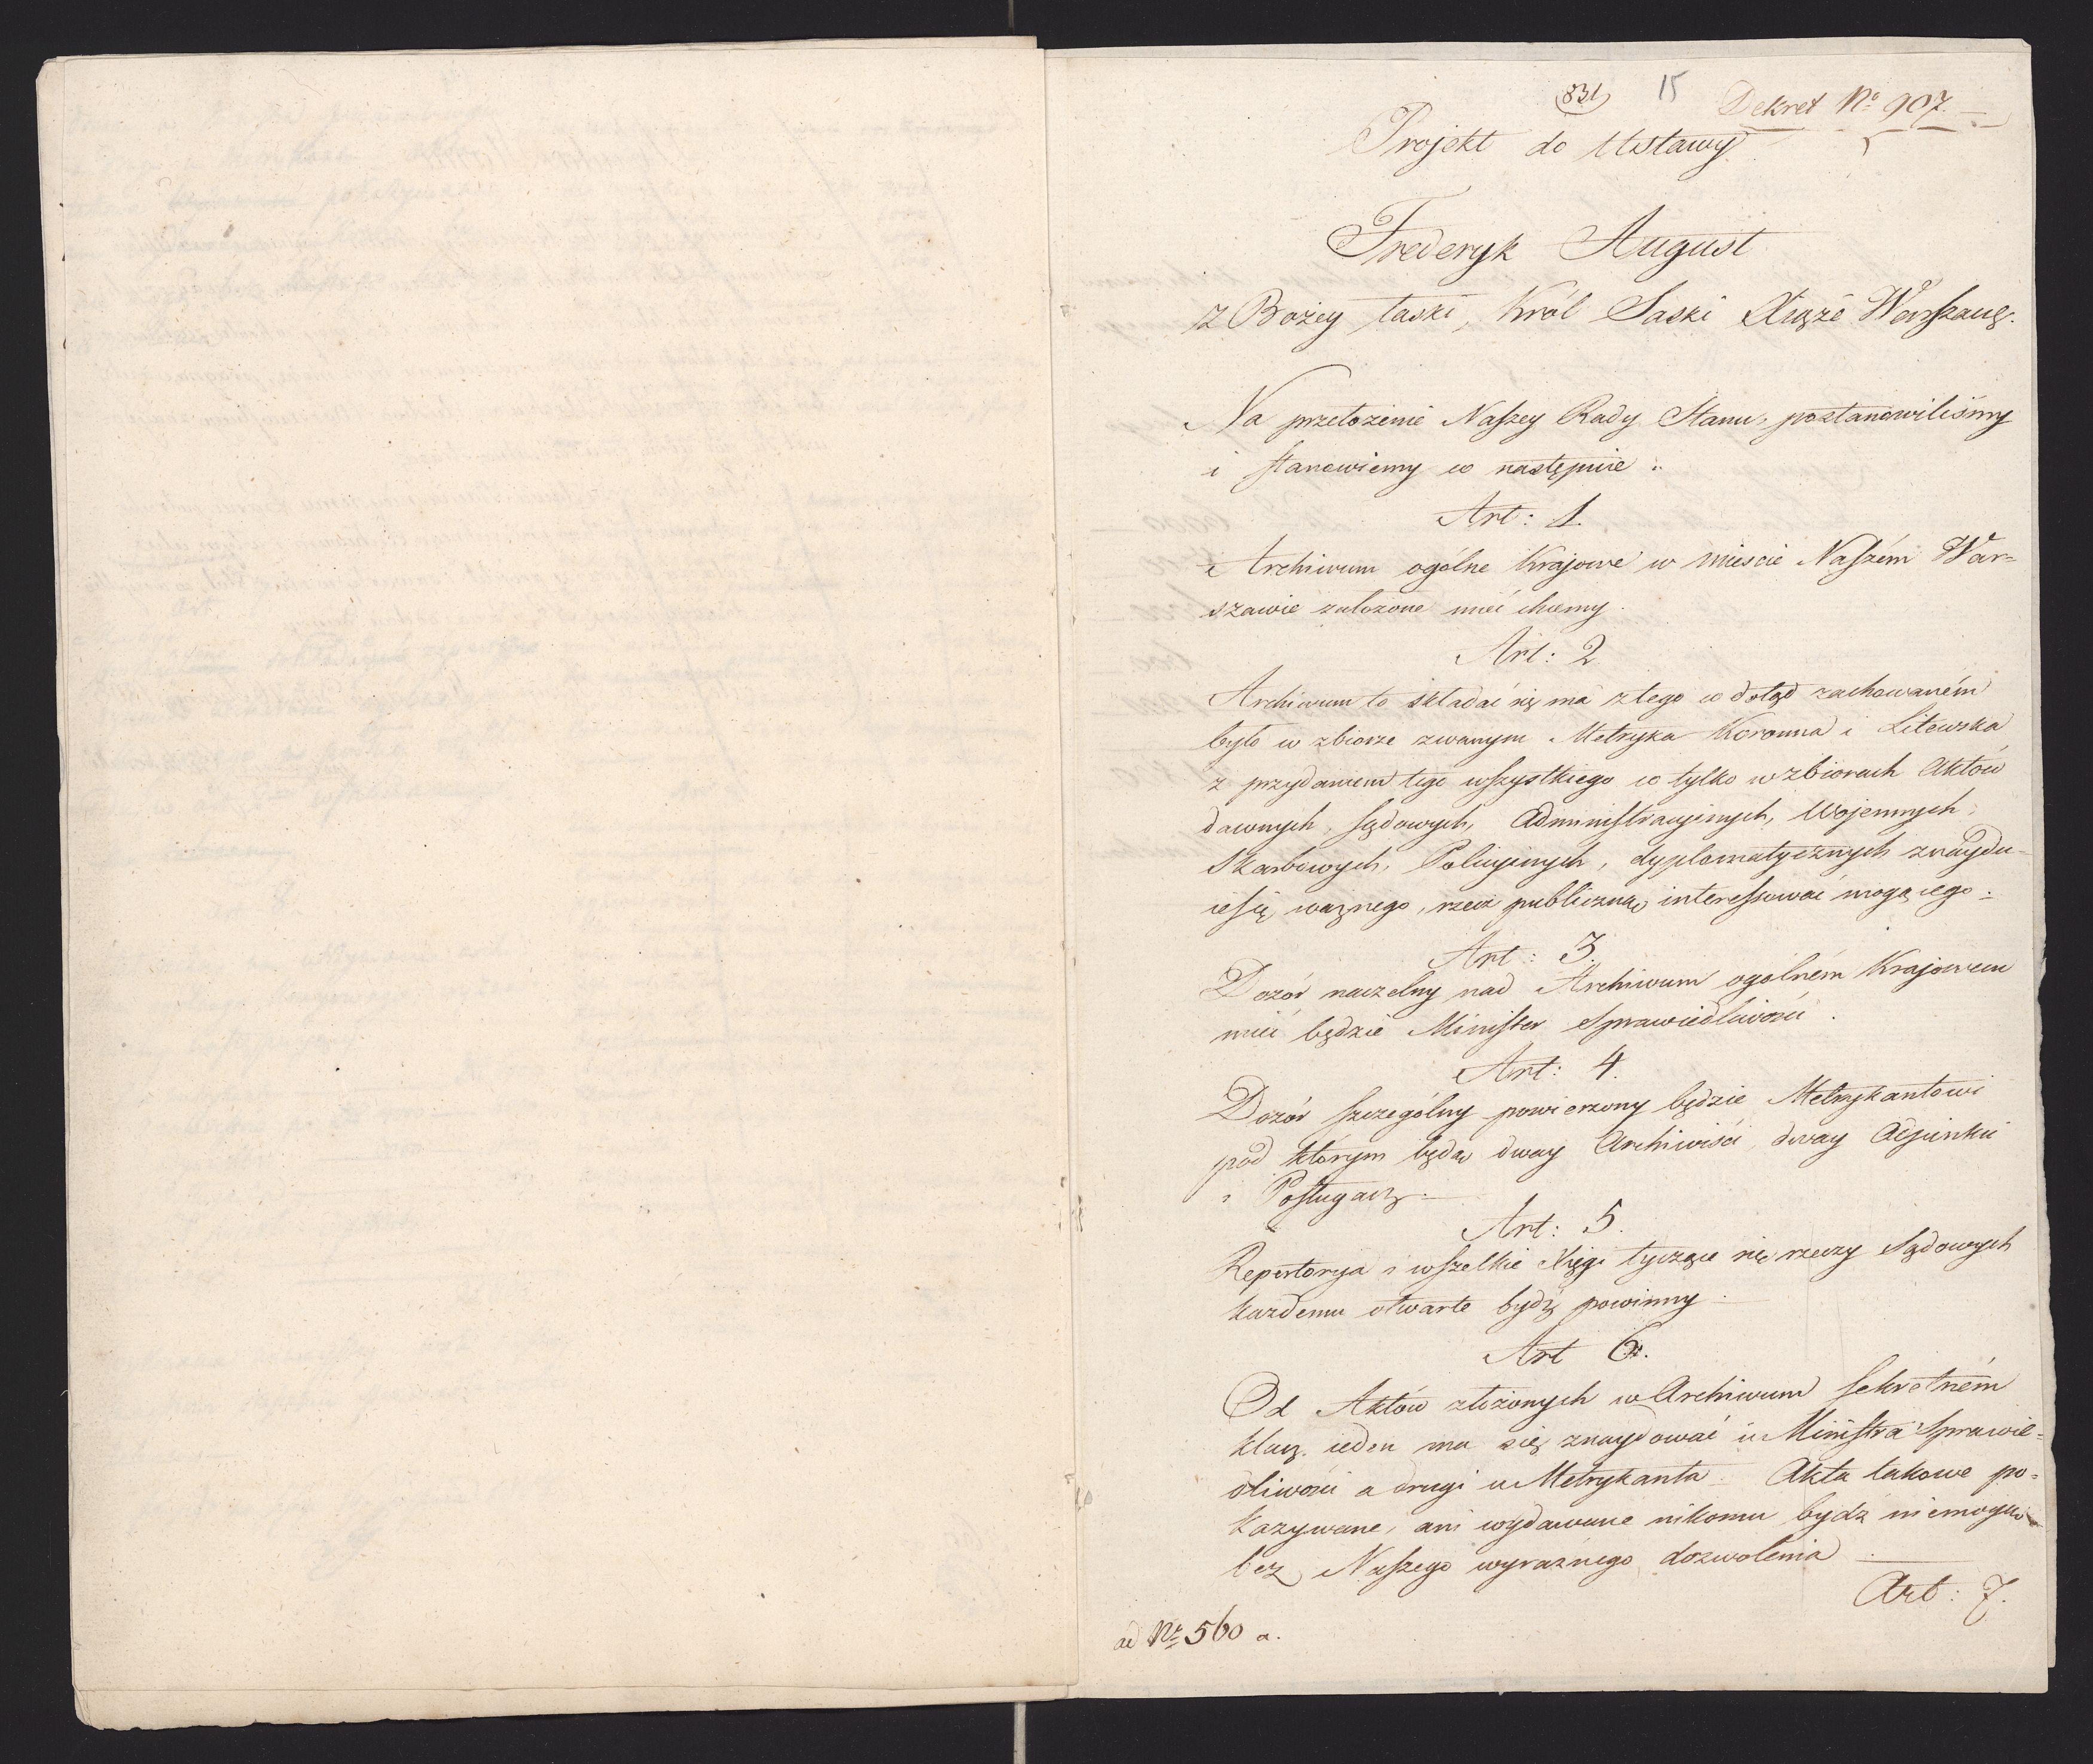 831 15 Dekret No 907.
Projekt do Ustawy
Frederyk August
z Bożey łaski, Król Saski Xiąże Warszaws.
Na przełożenie Naszey Rady Stanu, postanowiliśmy
i stanowiemy co następuie:
Art: 1.
Archiwum ogólne Krajowe w mieście Naszém War=
szawie założone mieć chcemy.
Art: 2
Archiwum to składać się ma z tego co dotąd zachowaném
było w zbiorze zwanym Metryka Koronna i Litewska
z przydaniem tego wszystkiego co tylko w zbiorach Aktów
dawnych, sądowych, Administracyinych, Wojennych,
Skarbowych, Policyinych, dyplomatycznych znaydu-
ie się ważnego, rzecz publiczną interessować mogącego:
Art: 3.
Dozór naczelny nad Archiwum ogólném Krajowem
mieć będzie Minister Sprawiedliwości.
Art: 4.
Dozór szczególny powierzony będzie Metrykantowi
pod którym będą dway Archiwiści, dway Adjunkci
i Posługacz.
Art: 5.
Repertorya i wszelkie Xięgi tyczące się rzeczy Sądowych
każdemu otwarte bydź powinny.
Art 6.
Od Aktów złożonych w Archiwum sekretném
klucz ieden ma się znaydować u Ministra Sprawie=
dliwości a drugi u Metrykanta. Akta takowe po=
kazywane, ani wydawane nikomu bydz niemogą
bez Naszego wyraźnego dozwolenia
Art: 7.
ad No 560 a.